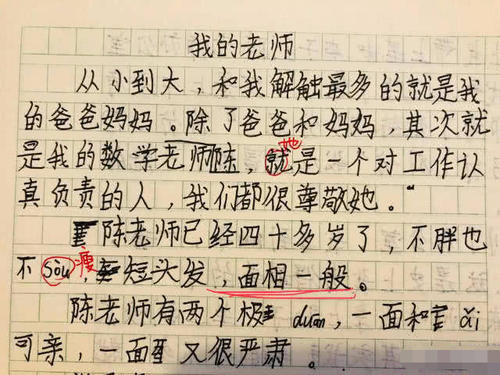 我的老师
从小到大，和我解触最多的就是我
的爸爸妈妈。除了爸爸和妈妈，其次就
是我的数学老师陈，就她是一个对工作认
真负责的人，我们都很尊敬她。
陈老师已经四十多岁了，不胖也
不sòu瘦，短头发，面相一般。
陈老师有两个极duān，一面和ǎi
可亲，一面又很严肃。